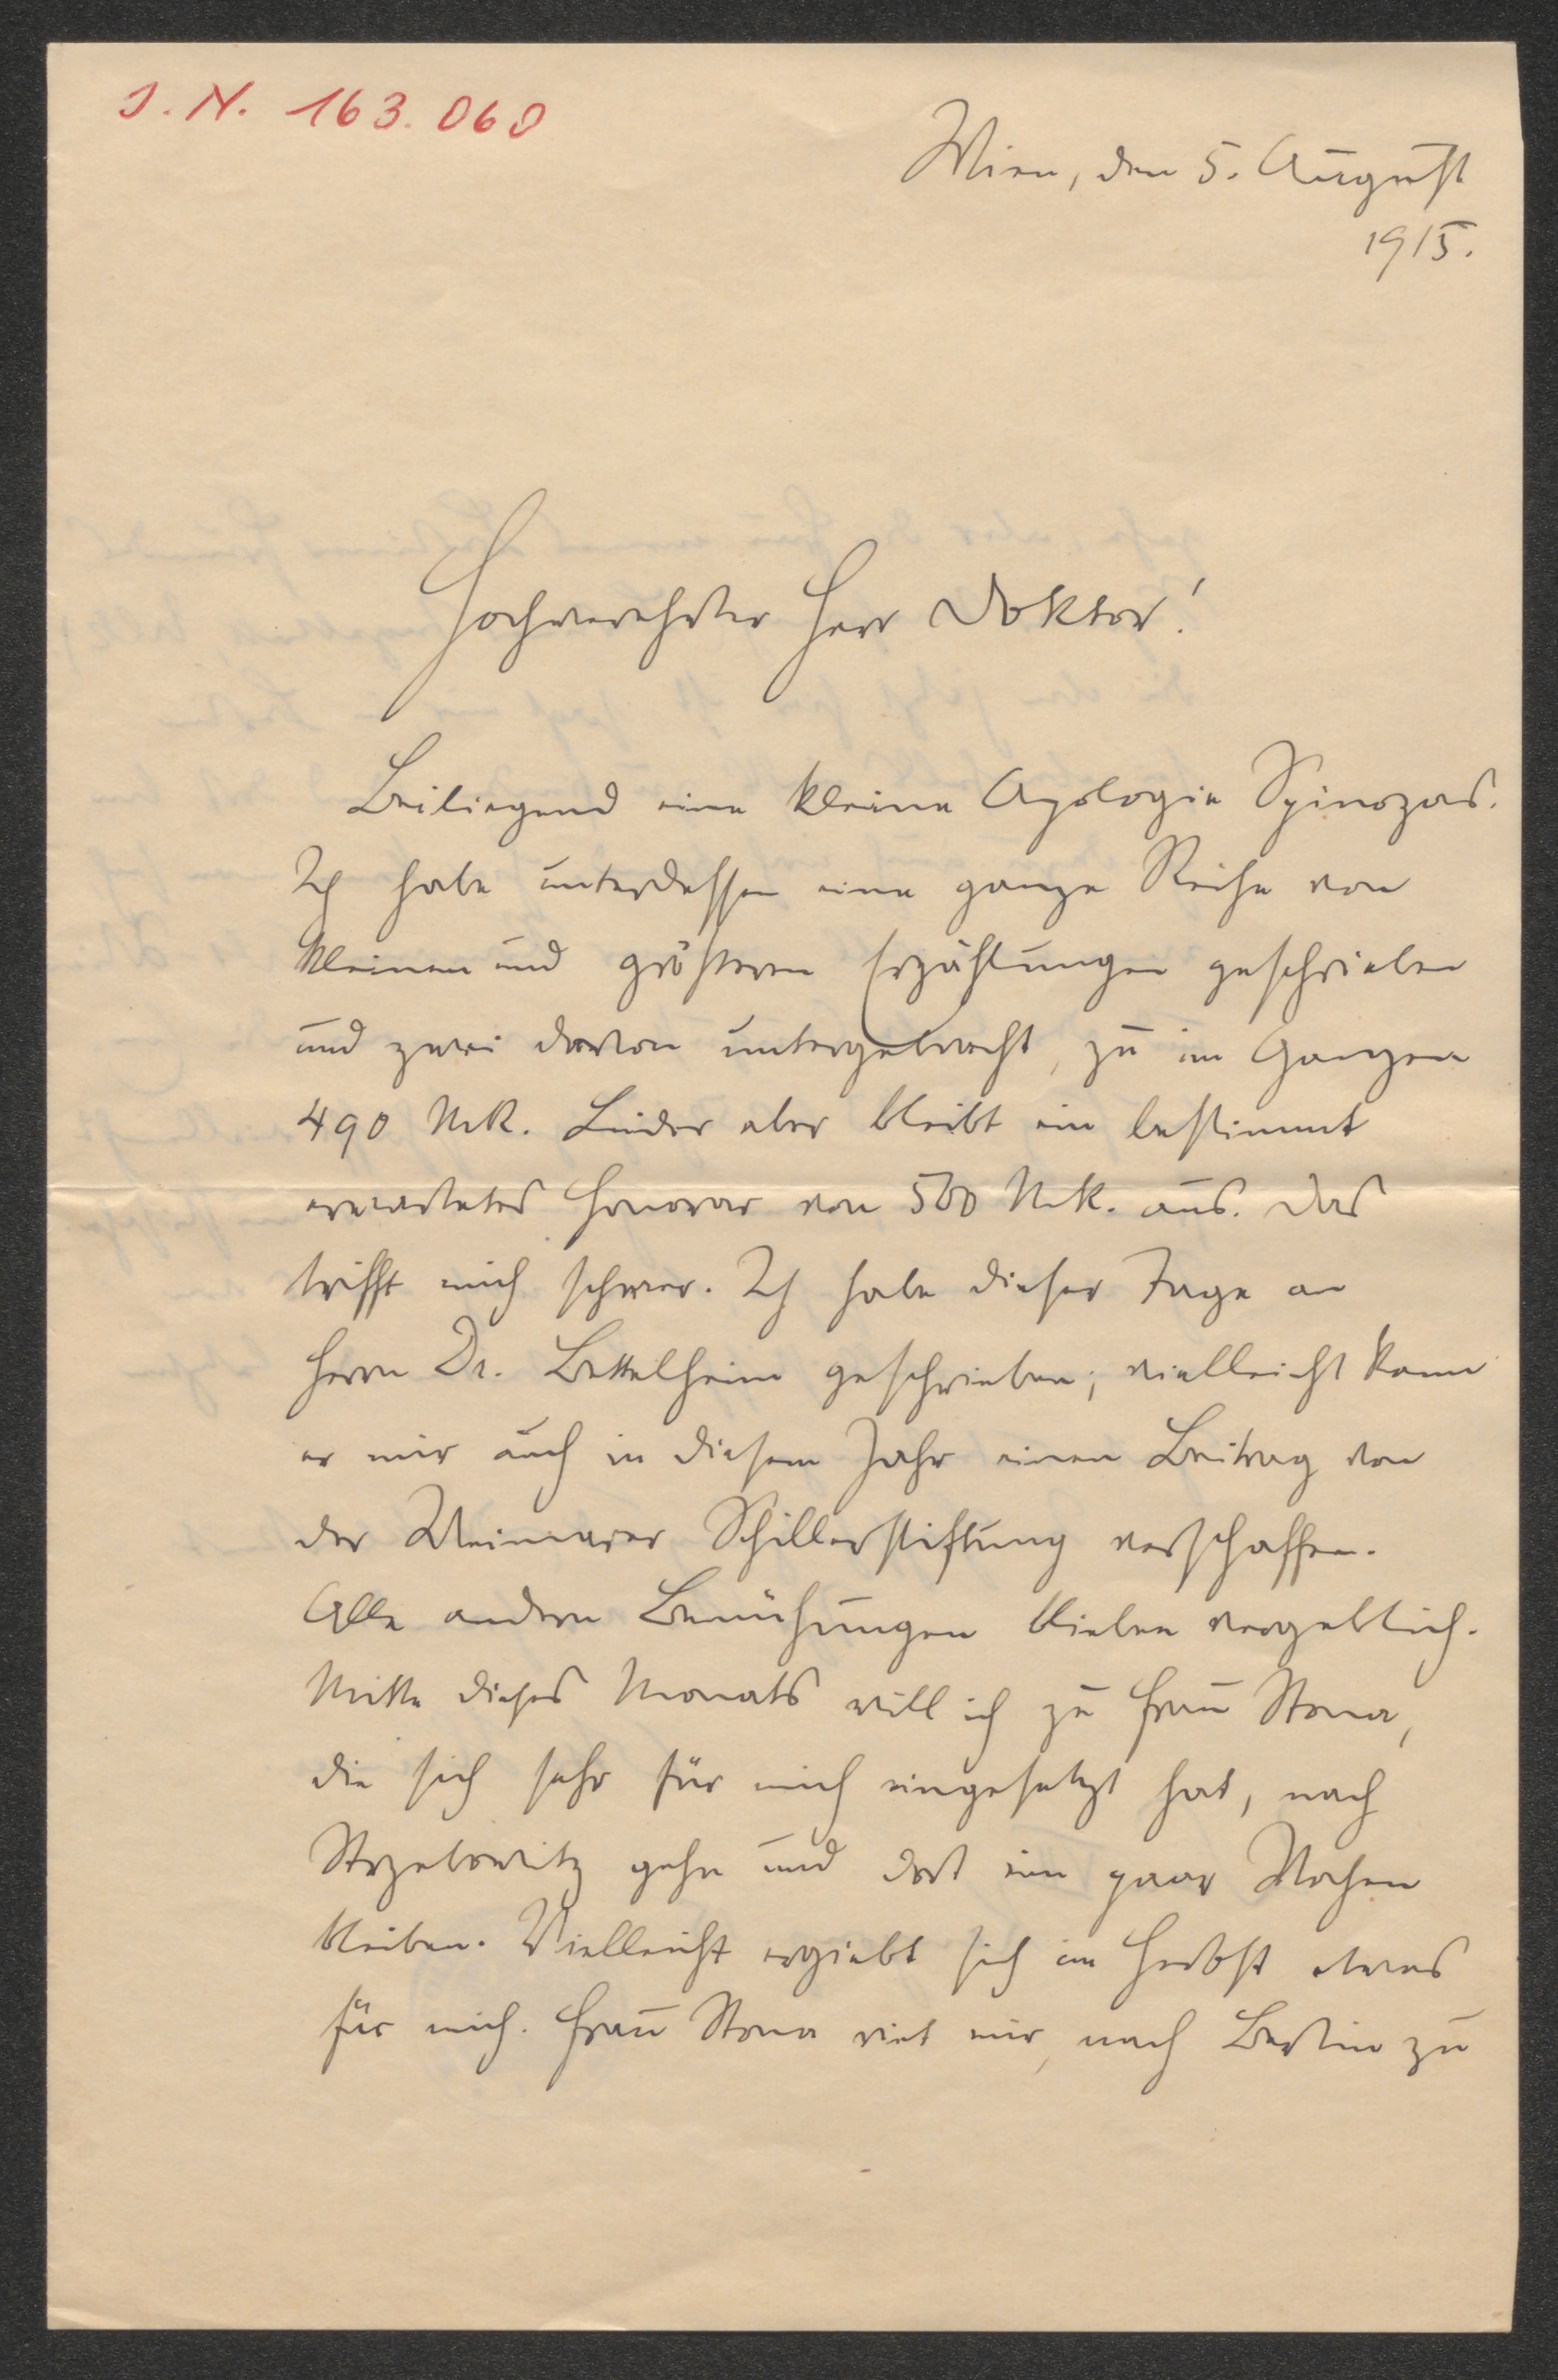 J. N. 163.060
Wien, den 5. August
1915.
Hochverehrter Herr Doktor!
Beiliegend eine kleine Apologie Spinozas.
Ich habe unterdessen eine ganze Reihe von
kleinen und größeren Erzählungen geschrieben
und zwei davon untergebracht, zu im Ganzen
490 Mk. Leider aber bleibt ein bestimmt
erwartetes Honorar von 500 Mk. aus. Das
trifft mich schwer. Ich habe dieser Tage an
Herrn Dr. Bettelheim geschrieben; vielleicht kann
er mir auch in diesem Jahr einen Beitrag von
der Weimarer Schillerstiftung verschaffen.
Alle andern Bemühungen blieben vergeblich.
Mitte dieses Monats will ich zu Frau Stona,
die sich sehr für mich eingesetzt hat, nach
Strzebowitz gehn und dort ein paar Wochen
bleiben. Vielleicht ergiebt sich im Herbst etwas
für mich. Frau Stona riet mir, nach Berlin zu